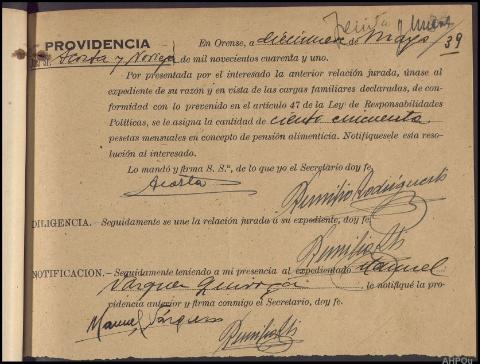 Treinta y nueve
39
PROVIDENCIA En Orense, a diecinueve de Mayo
Juez Sr. Acosta y Noriega de mil novecientos cuarenta y uno.
Por presentada por el interesado la anterior relación jurada, únase al
expediente de su razón y en vista de las cargas familiares declaradas, de
conformidad con lo prevenido en el artículo 47 de la Ley de Responsabilidades
Políticas, se le asigna la cantidad de ciento cincuenta
pesetas mensuales en concepto de pensión alimenticia. Notifíquesele esta reso-
lución al interesado.
Lo mandó y firma S. S.ª, de lo que yo el Secretario doy fe.
Acosta
Remilio Rodríguez
DILIGENCIA.- Seguidamente se une la relación jurada a su expediente, doy fe.
NOTIFICACION.- Seguidamente teniendo a mi presencia al expedientado Manuel
Vázquez Quiroga, le notifiqué la pro-
videncia anterior y firma conmigo el Secretario, doy fe.
Manuel Vázquez
AHPOu